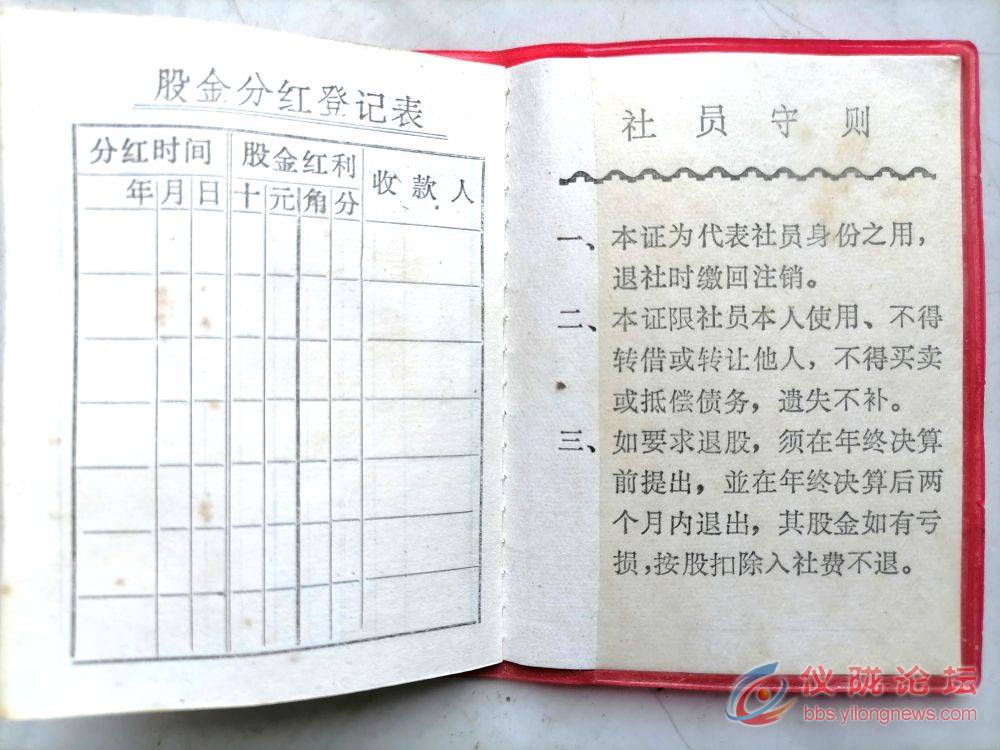 股金分红登记表
分红时间 股金红利 收款人
年 月 日 十 元 角 分
社员守则
一、本证为代表社员身份之用，
退社时缴回注销。
二、本证限社员本人使用、不得
转借或转让他人，不得买卖
或抵偿债务，遗失不补。
三、如要求退股，须在年终决算
前提出，並在年终决算后两
个月内退出，其股金如有亏
损，按股扣除入社费不退。
仪陇论坛
bbs.yilongnews.com